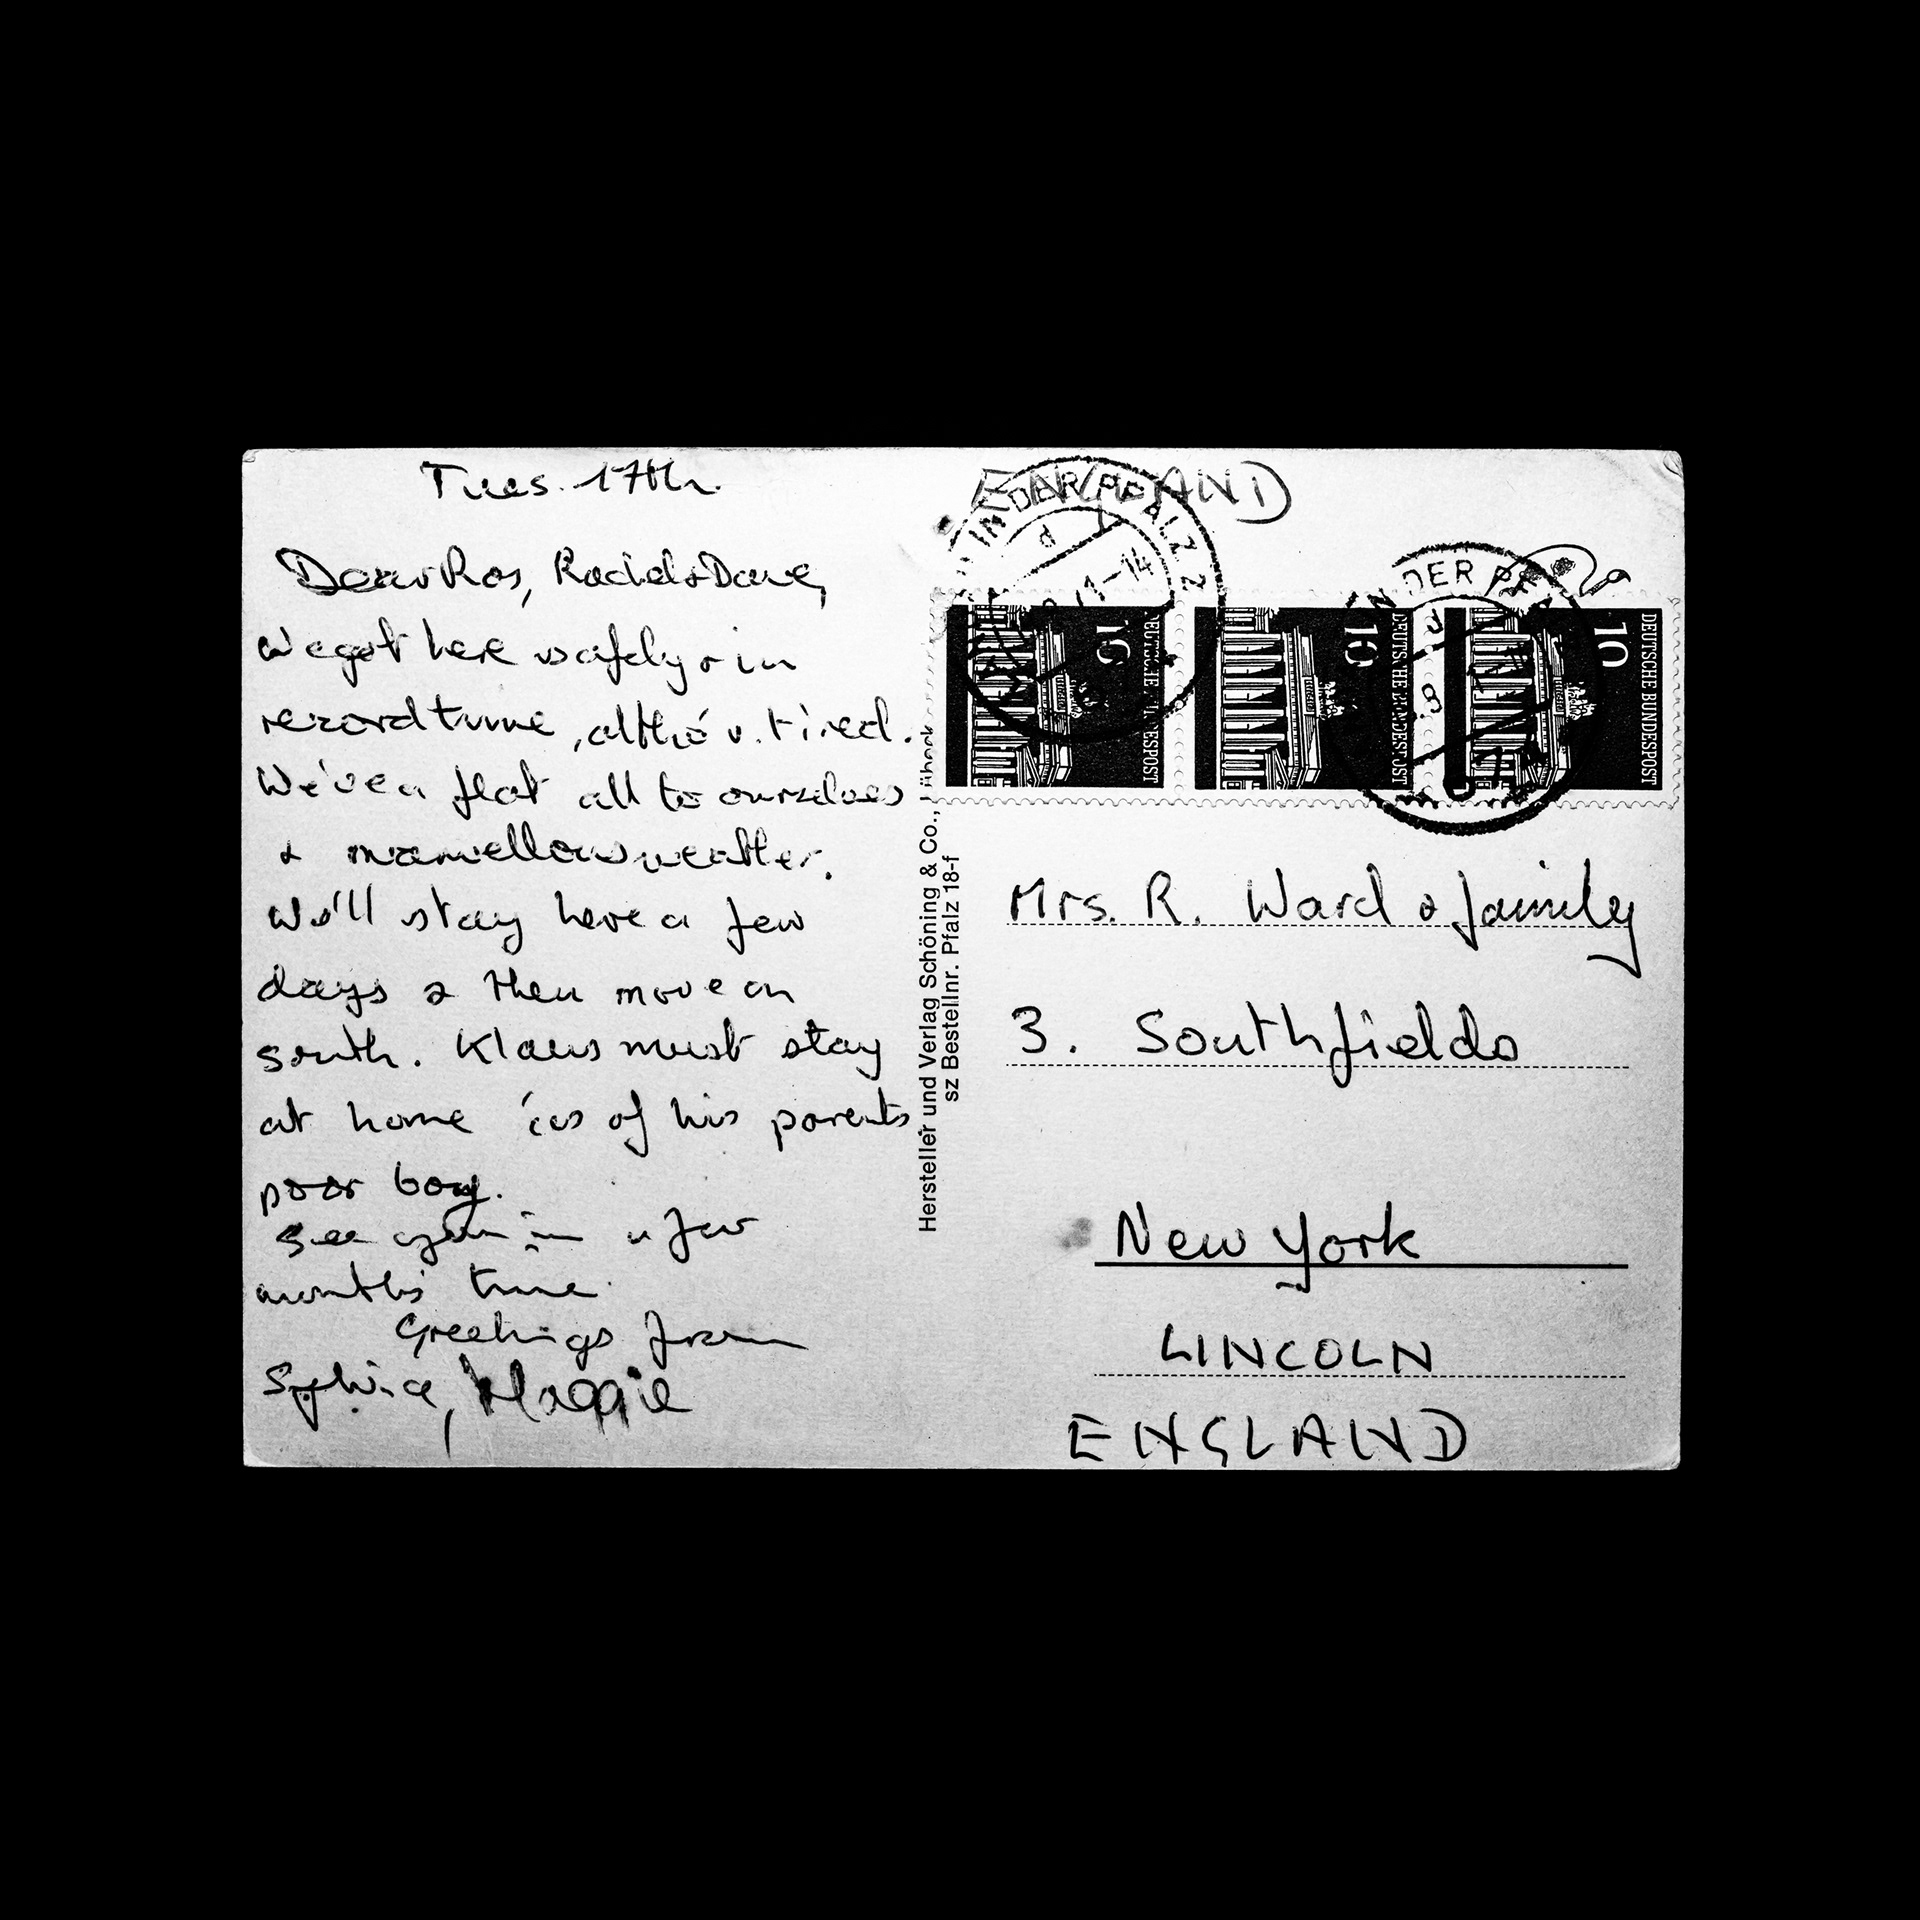 Tues. 17th.
Dear Ros, Rachel & Dave,
We got here safely & in
record time, altho' v. tired.
We've a flat all to ourselves
& marvellous weather.
We'll stay here a few
days & then move on
south. Klaus must stay
at home 'cos of his parents
poor boy.
See you in a few
months' time.
Greetings from
Sylvia, Maggie
Hersteller und Verlag Schöning & Co., Lübeck
sz Bestellnr. Pfalz 18-f
ENGLAND
IN DER PFALZ 2
d
11-14
IN DER PF
d
8
10
DEUTSCHE BUNDESPOST
10
DEUTSCHE BUNDESPOST
10
DEUTSCHE BUNDESPOST
Mrs. R. Ward & family
3. Southfields
New York
LINCOLN
ENGLAND